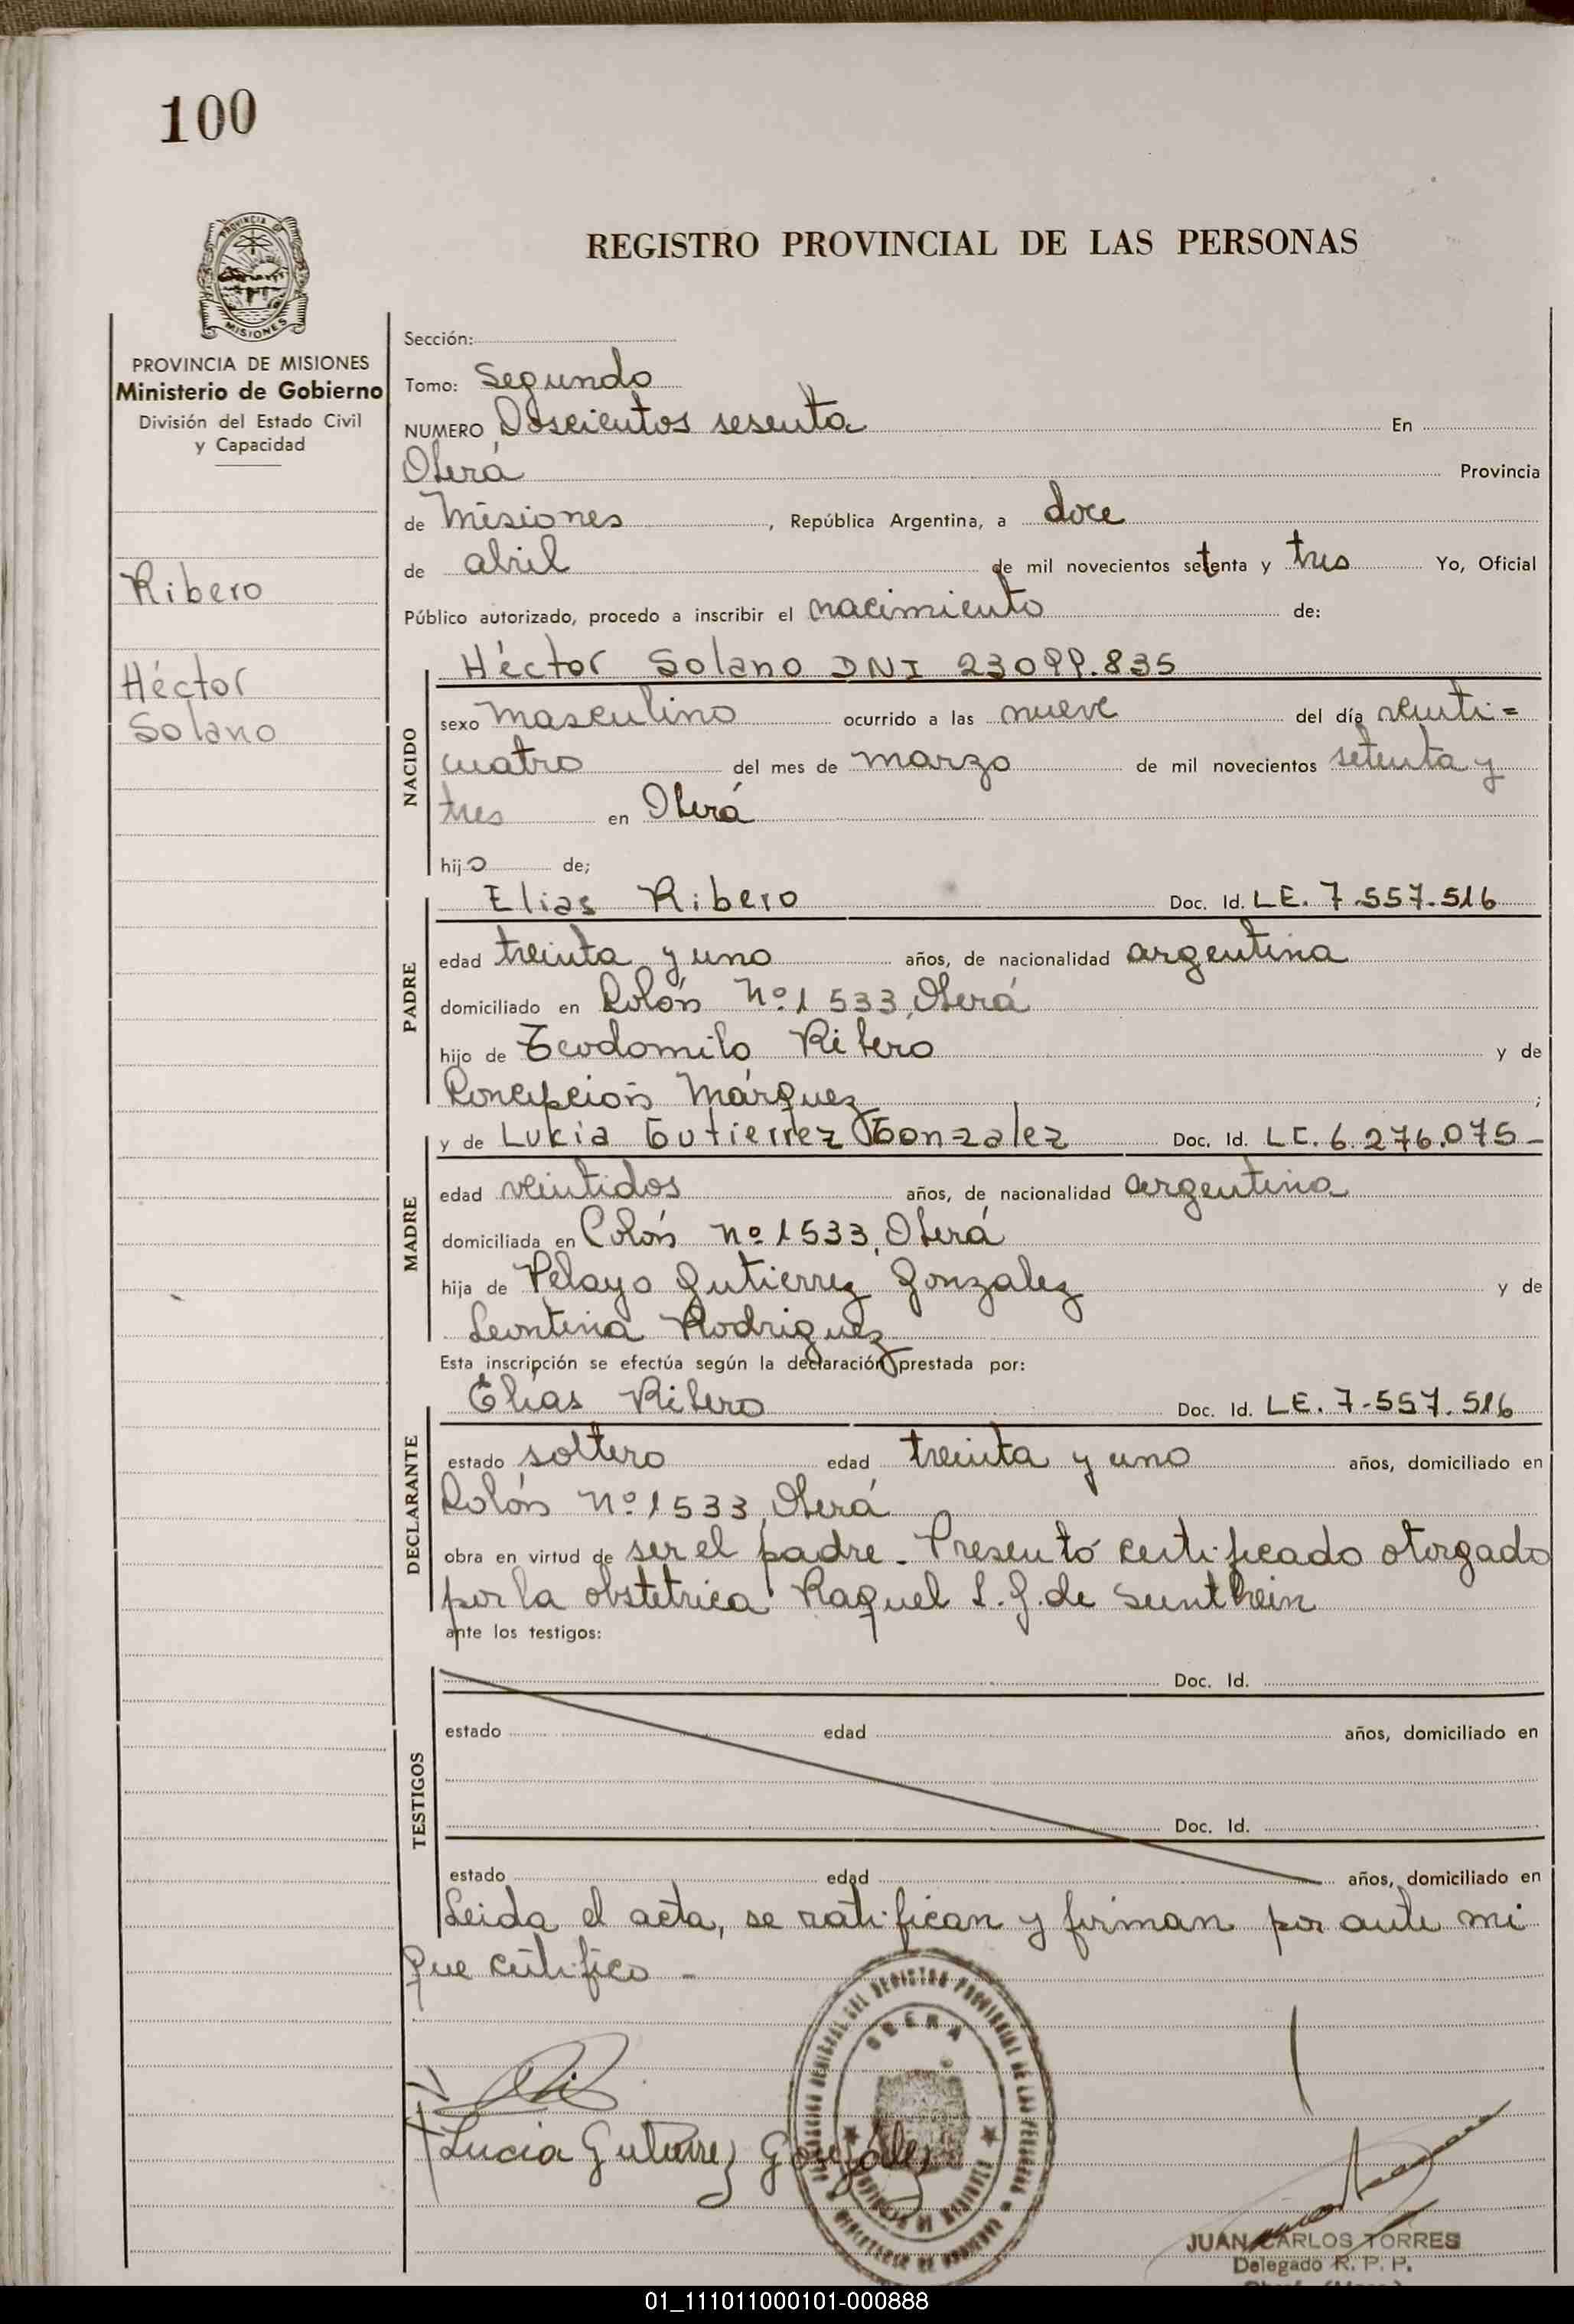 100
REGISTRO PROVINCIAL DE LAS PERSONAS
PROVINCIA DE MISIONES
Ministerio de Gobierno
División del Estado Civil
y Capacidad
Ribero
Héctor
Solano
Sección:
Tomo: Segundo
NUMERO Doscientos sesenta En
Oberá Provincia
de Misiones, República Argentina, a doce
de abril de mil novecientos setenta y tres Yo, Oficial
Público autorizado, procedo a inscribir el nacimiento de:
NACIDO
Héctor Solano DNI 23099.835
sexo masculino ocurrido a las nueve del día veinti=
cuatro del mes de marzo de mil novecientos setenta y
tres en Oberá
hijo de;
PADRE
Elias Ribero Doc. Id. LE. 7.557.516
edad treinta y uno años, de nacionalidad argentina
domiciliado en Colón Nº 1533, Oberá
hijo de Teodomilo Ribero y de
Concepción Márquez;
MADRE
y de Lucia Gutierrez Gonzalez Doc. Id. LC. 6.276.075-
edad veintidos años, de nacionalidad argentina
domiciliada en Colón nº 1533, Oberá
hija de Pelayo Gutierrez Gonzalez y de
Leontina Rodriguez
Esta inscripción se efectúa según la declaración prestada por:
DECLARANTE
Elias Ribero Doc. Id. LE. 7-557.516
estado soltero edad treinta y uno años, domiciliado en
Colón Nº 1533, Oberá
obra en virtud de ser el padre. Presentó certificado otorgado
por la obstetrica Raquel L. G. de Sunthein
ante los testigos:
TESTIGOS
Doc. Id.
estado edad años, domiciliado en
Doc. Id.
estado edad años, domiciliado en
Leida el acta, se ratifican y firman por ante mi
que certifico -
Lucia Gutierrez González
OBERA
JUAN CARLOS TORRES
Delegado R. P. P.
01_111011000101-000888